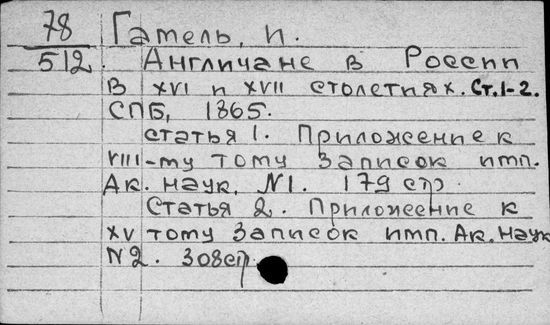 78 Гамель, И.
512 Англичане в России
в XVI и XVII столетиях. Ст. 1-2.
СПБ, 1865.
статья 1. Приложение к
VIII-му тому Записок имп.
Ак. наук, N1. 179 стр.
Статья 2. Приложение к
XV тому Записок имп. Ак. Наук
N2. 308 стр.